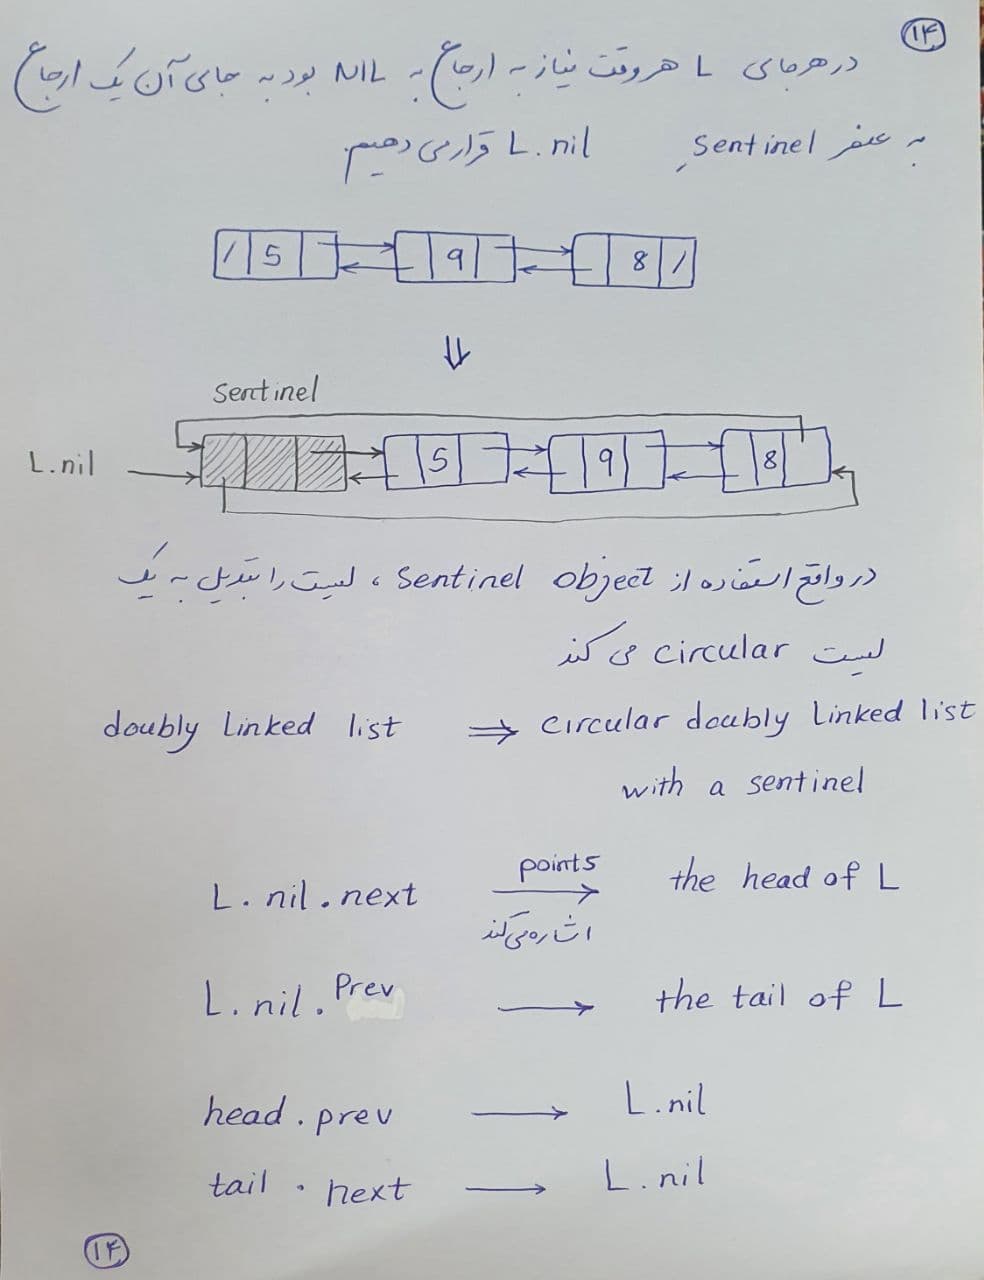 ۱۴
در هر جای L هر وقت نیاز به ارجاع به NIL بود به جای آن یک ارجاع
به عنصر Sentinel، L.nil قرار می دهیم.
/ 5 9 8 /
⇓
Sentinel
L.nil 5 9 8
در واقع استفاده از Sentinel object، لیست را تبدیل به یک
لیست circular می کند
doubly linked list ⇒ circular doubly linked list
with a sentinel
L.nil.next points → the head of L
اشاره می کند
L.nil.Prev → the tail of L
head.prev → L.nil
tail.next → L.nil
۱۴